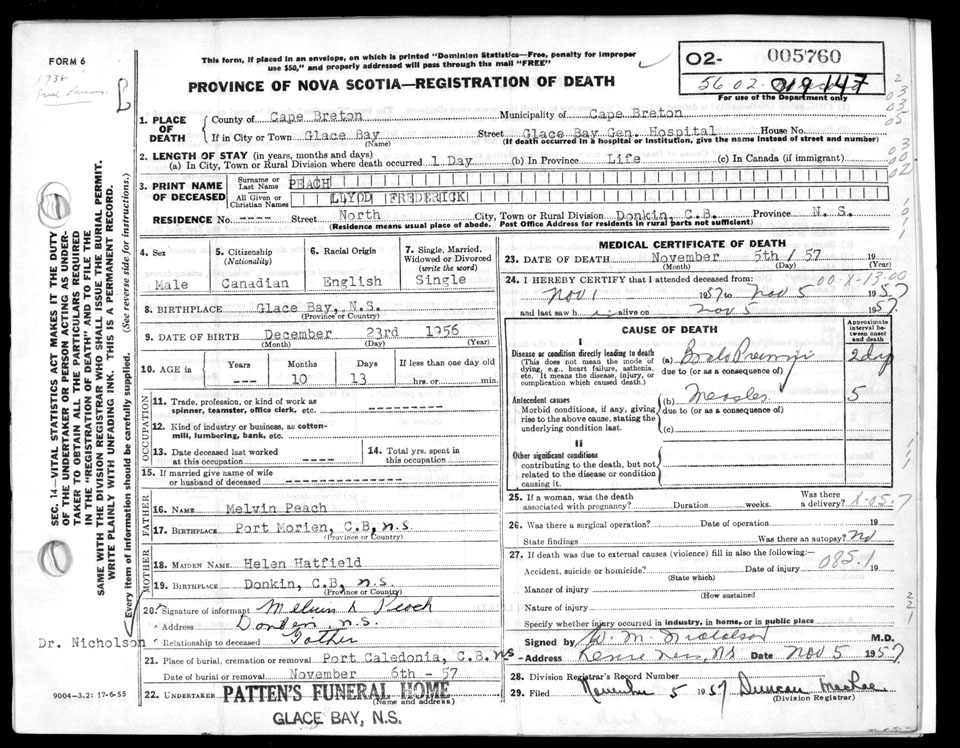 FORM 6
This form, if placed in an envelope, on which is printed "Dominion Statistics—Free, penalty for improper
use $50," and properly addressed will pass through the mail "FREE"
PROVINCE OF NOVA SCOTIA—REGISTRATION OF DEATH
O2- 005760
5602- 019147
For use of the Department only
1. PLACE OF DEATH
County of Cape Breton Municipality of Cape Breton
If in City or Town Glace Bay Street Glace Bay Gen. Hospital House No.
(Name) (If death occurred in a hospital or institution, give the name instead of street and number)
2. LENGTH OF STAY (in years, months and days)
(a) In City, Town or Rural Division where death occurred 1 Day (b) In Province Life (c) In Canada (if immigrant)
3. PRINT NAME OF DECEASED
Surname or Last Name PEACH
All Given or Christian Names LLYOD FREDERICK
RESIDENCE No. ---- Street North City, Town or Rural Division Donkin, C.B. Province N. S.
(Residence means usual place of abode. Post Office Address for residents in rural parts not sufficient)
4. Sex
Male
5. Citizenship
(Nationality)
Canadian
6. Racial Origin
English
7. Single, Married,
Widowed or Divorced
(write the word)
Single
8. BIRTHPLACE Glace Bay, N.S.
(Province or Country)
9. DATE OF BIRTH December 23rd 1956
(Month) (Day) (Year)
10. AGE in Years Months Days If less than one day old
--- 10 13 hrs. or min.
OCCUPATION
11. Trade, profession, or kind of work as
spinner, teamster, office clerk, etc. ----------
12. Kind of industry or business, as cotton-
mill, lumbering, bank, etc. ----------
13. Date deceased last worked
at this occupation ----
14. Total yrs. spent in
this occupation
15. If married give name of wife
or husband of deceased ----------------
FATHER
16. NAME Melvin Peach
17. BIRTHPLACE Port Morien, C.B, N.S.
(Province or Country)
MOTHER
18. MAIDEN NAME Helen Hatfield
19. BIRTHPLACE Donkin, C.B, N.S.
(Province or Country)
20. Signature of informant Melvin Peach
Address Donkin N.S.
Relationship to deceased Father
Dr. Nicholson
21. Place of burial, cremation or removal Port Caledonia, C.B. NS
Date of burial or removal November 6th - 57
22. UNDERTAKER PATTEN'S FUNERAL HOME
(Name and address)
GLACE BAY, N.S.
9004-3.2: 17-6-55
SEC. 14—VITAL STATISTICS ACT MAKES IT THE DUTY
OF THE UNDERTAKER OR PERSON ACTING AS UNDER-
TAKER TO OBTAIN ALL THE PARTICULARS REQUIRED
IN THE "REGISTRATION OF DEATH" AND TO FILE THE
SAME WITH THE DIVISION REGISTRAR WHO SHALL ISSUE THE BURIAL PERMIT.
WRITE PLAINLY WITH UNFADING INK. THIS IS A PERMANENT RECORD.
Every item of information should be carefully supplied. (See reverse side for instructions.)
MEDICAL CERTIFICATE OF DEATH
23. DATE OF DEATH November 5th / 57
(Month) (Day) (Year)
24. I HEREBY CERTIFY that I attended deceased from:
Nov 1 1957 to Nov 5 1957
and last saw h i alive on Nov 5 1957
00-X-13-00
CAUSE OF DEATH
Approximate
interval between
onset
and death
I
Disease or condition directly leading to death
(This does not mean the mode of
dying, e.g., heart failure, asthenia,
etc. It means the disease, injury, or
complication which caused death.)
(a) 2 day
due to (or as a consequence of)
Antecedent causes
Morbid conditions, if any, giving
rise to the above cause, stating the
underlying condition last.
(b) Measles 5
due to (or as a consequence of)
(c)
II
Other significant conditions
contributing to the death, but not
related to the disease or condition
causing it.
25. If a woman, was the death
associated with pregnancy? Duration weeks. Was there
a delivery?
X-05-7
26. Was there a surgical operation? Date of operation 19
State findings Was there an autopsy? No
27. If death was due to external causes (violence) fill in also the following:
085.1
Accident, suicide or homicide? Date of injury 19
(State which)
Manner of injury
(How sustained
Nature of injury
Specify whether injury occurred in industry, in home, or in public place
Signed by W. M. Nicholson M.D.
Address Date Nov 5 1957
28. Division Registrar's Record Number
29. Filed November 5 1957 Duncan MacRae
(Division Registrar)